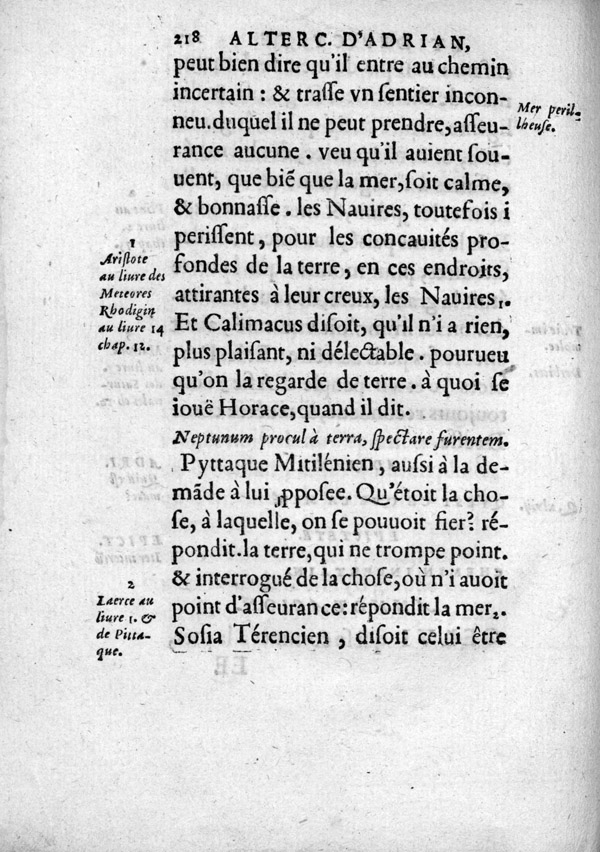 218 ALTERC. D'ADRIAN,
peut bien dire qu'il entre au chemin
incertain : & trasse vn sentier incon-
neu.duquel il ne peut prendre,asseu-
rance aucune . veu qu'il auient sou-
uent, que biẽ que la mer,soit calme,
& bonnasse . les Nauires, toutefois i
perissent, pour les concauités pro-
fondes de la terre, en ces endroits,
attirantes à leur creux, les Nauires₁.
Et Calimacus disoit, qu'il n'i a rien,
plus plaisant, ni délectable . pourueu
qu'on la regarde de terre . à quoi se
iouë Horace,quand il dit.
Neptunum procul à terra, spectare furentem.
Pyttaque Mitilénien, aussi à la de-
mãde à lui ꝓposee. Qu'étoit la cho-
se, à laquelle, on se pouuoit fier? ré-
pondit.la terre, qui ne trompe point.
& interrogué de la chose, où n'i auoit
point d'asseurance:répondit la mer₂.
Sosia Térencien , disoit celui être
Mer peril-
lheuse.
1
Aristote
au liure des
Meteores
Rhodigin
au liure 14
chap. 12.
2
Laerce au
liure 1. &
de Pitta-
que.